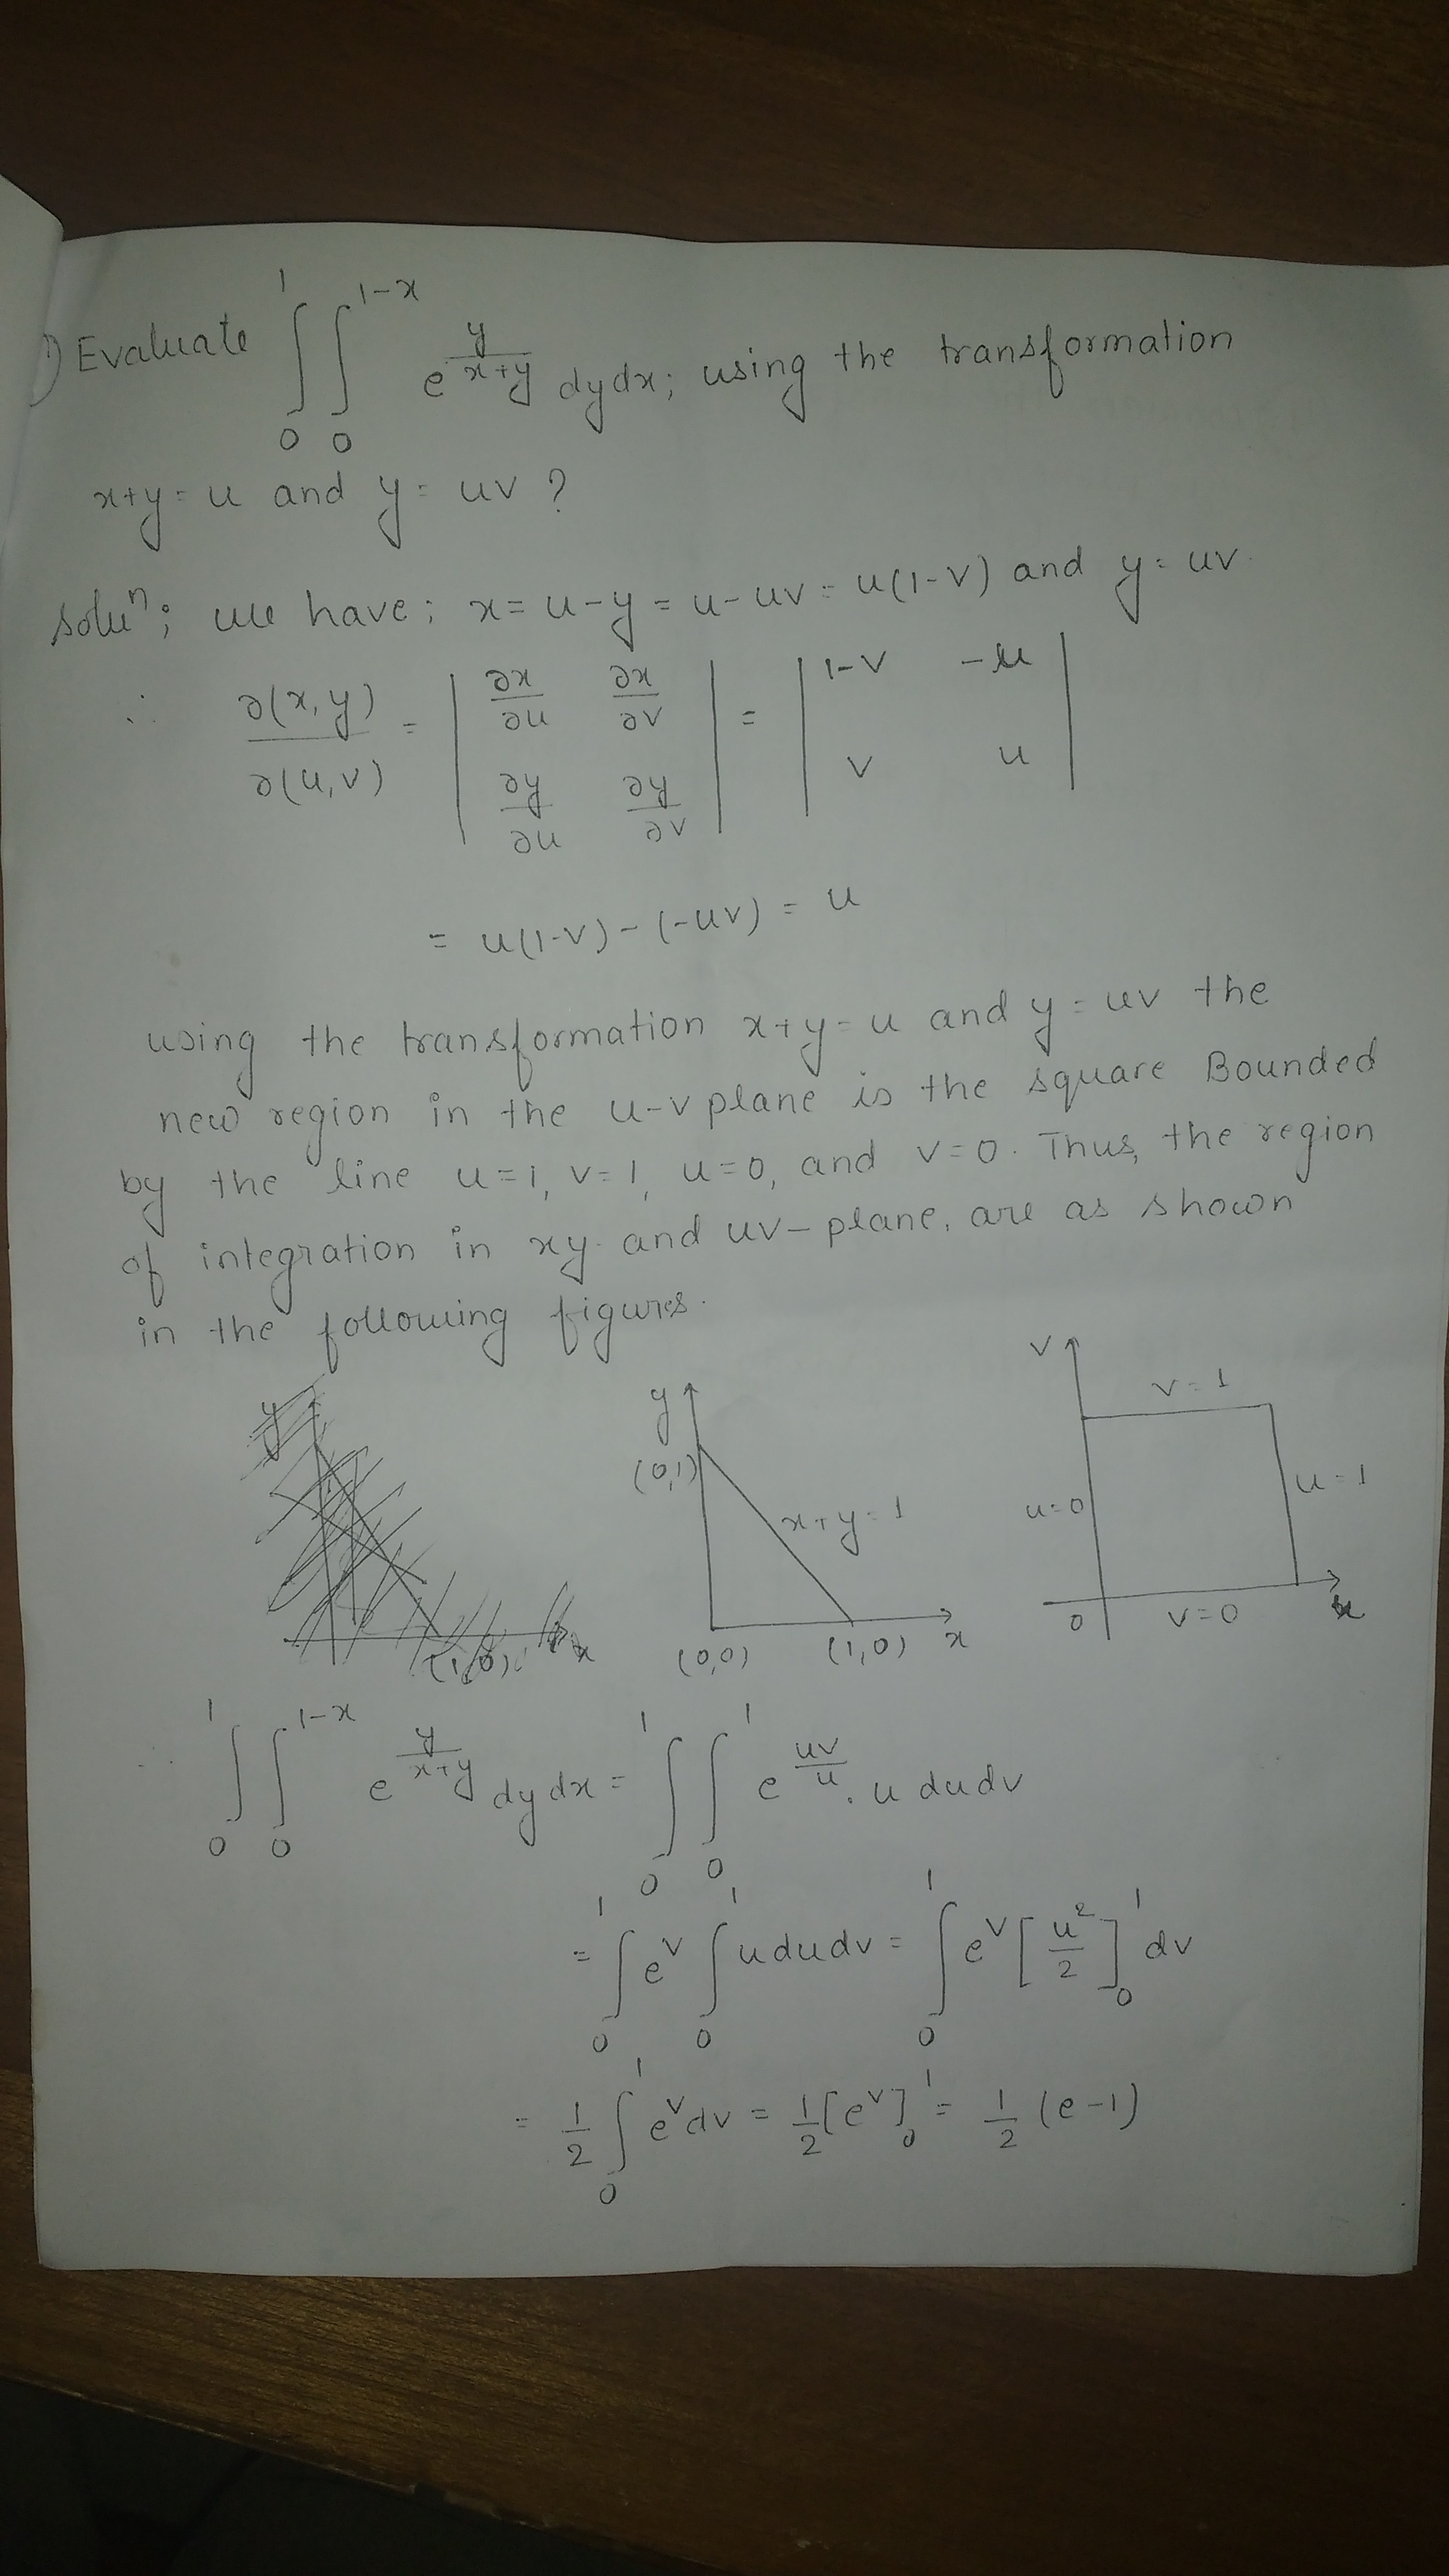 1) Evaluate ∫₀¹ ∫₀^(1-x) e^(y/(x+y)) dy dx; using the transformation
x+y = u and y = uv ?
soluⁿ; we have; x = u-y = u-uv = u(1-v) and y = uv.
∴ ∂(x,y)/∂(u,v) = | ∂x/∂u ∂x/∂v ; ∂y/∂u ∂y/∂v | = | 1-v -u ; v u |
= u(1-v) - (-uv) = u
using the transformation x+y = u and y = uv the
new region in the u-v plane is the square Bounded
by the line u=1, v=1, u=0, and v=0. Thus, the region
of integration in xy and uv-plane, are as shown
in the following figures.
y
(1,0)
x
y
(0,1)
x+y=1
(0,0)
(1,0)
x
v
v=1
u=0
u=1
0
v=0
u
∴ ∫₀¹ ∫₀^(1-x) e^(y/(x+y)) dy dx = ∫₀¹ ∫₀¹ e^(uv/u) . u du dv
= ∫₀¹ e^v ∫₀¹ u du dv = ∫₀¹ e^v [u²/2]₀¹ dv
= 1/2 ∫₀¹ e^v dv = 1/2 [e^v]₀¹ = 1/2 (e-1)